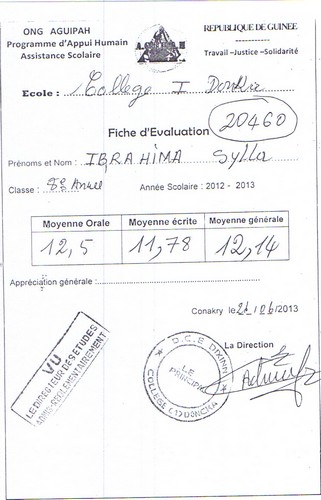 ONG AGUIPAH
Programme d'Appui Humain
Assistance Scolaire
REPUBLIQUE DE GUINEE
Travail –Justice –Solidarité
Ecole : College I Donka
Fiche d'Evaluation 20460
Prénoms et Nom : IBRAHIMA Sylla
Classe : 8è Année Année Scolaire : 2012 - 2013
Moyenne Orale Moyenne écrite Moyenne générale
12,5 11,78 12,14
Appréciation générale :
Conakry le 26/06/2013
La Direction
VU
LE DIRECTEUR DES ETUDES
D.C.E DIXINN
LE PRINCIPAL
COLLEGE (1) DONCKA